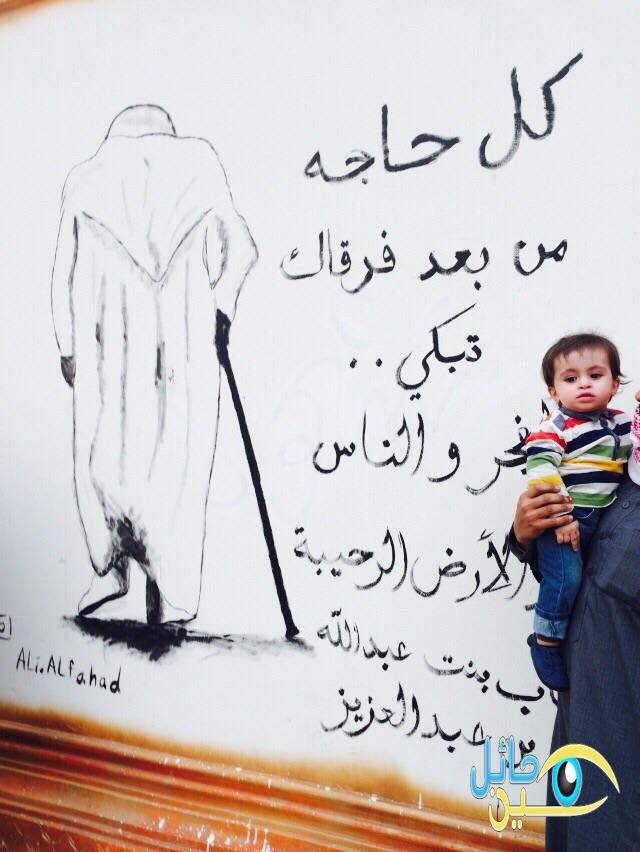 كل حاجه
من بعد فرقاك
تبكي ..
والناس
الأرض الرحيبة
بنت عبدالله
بن عبدالعزيز
ALi.ALfahad
حائل
سين